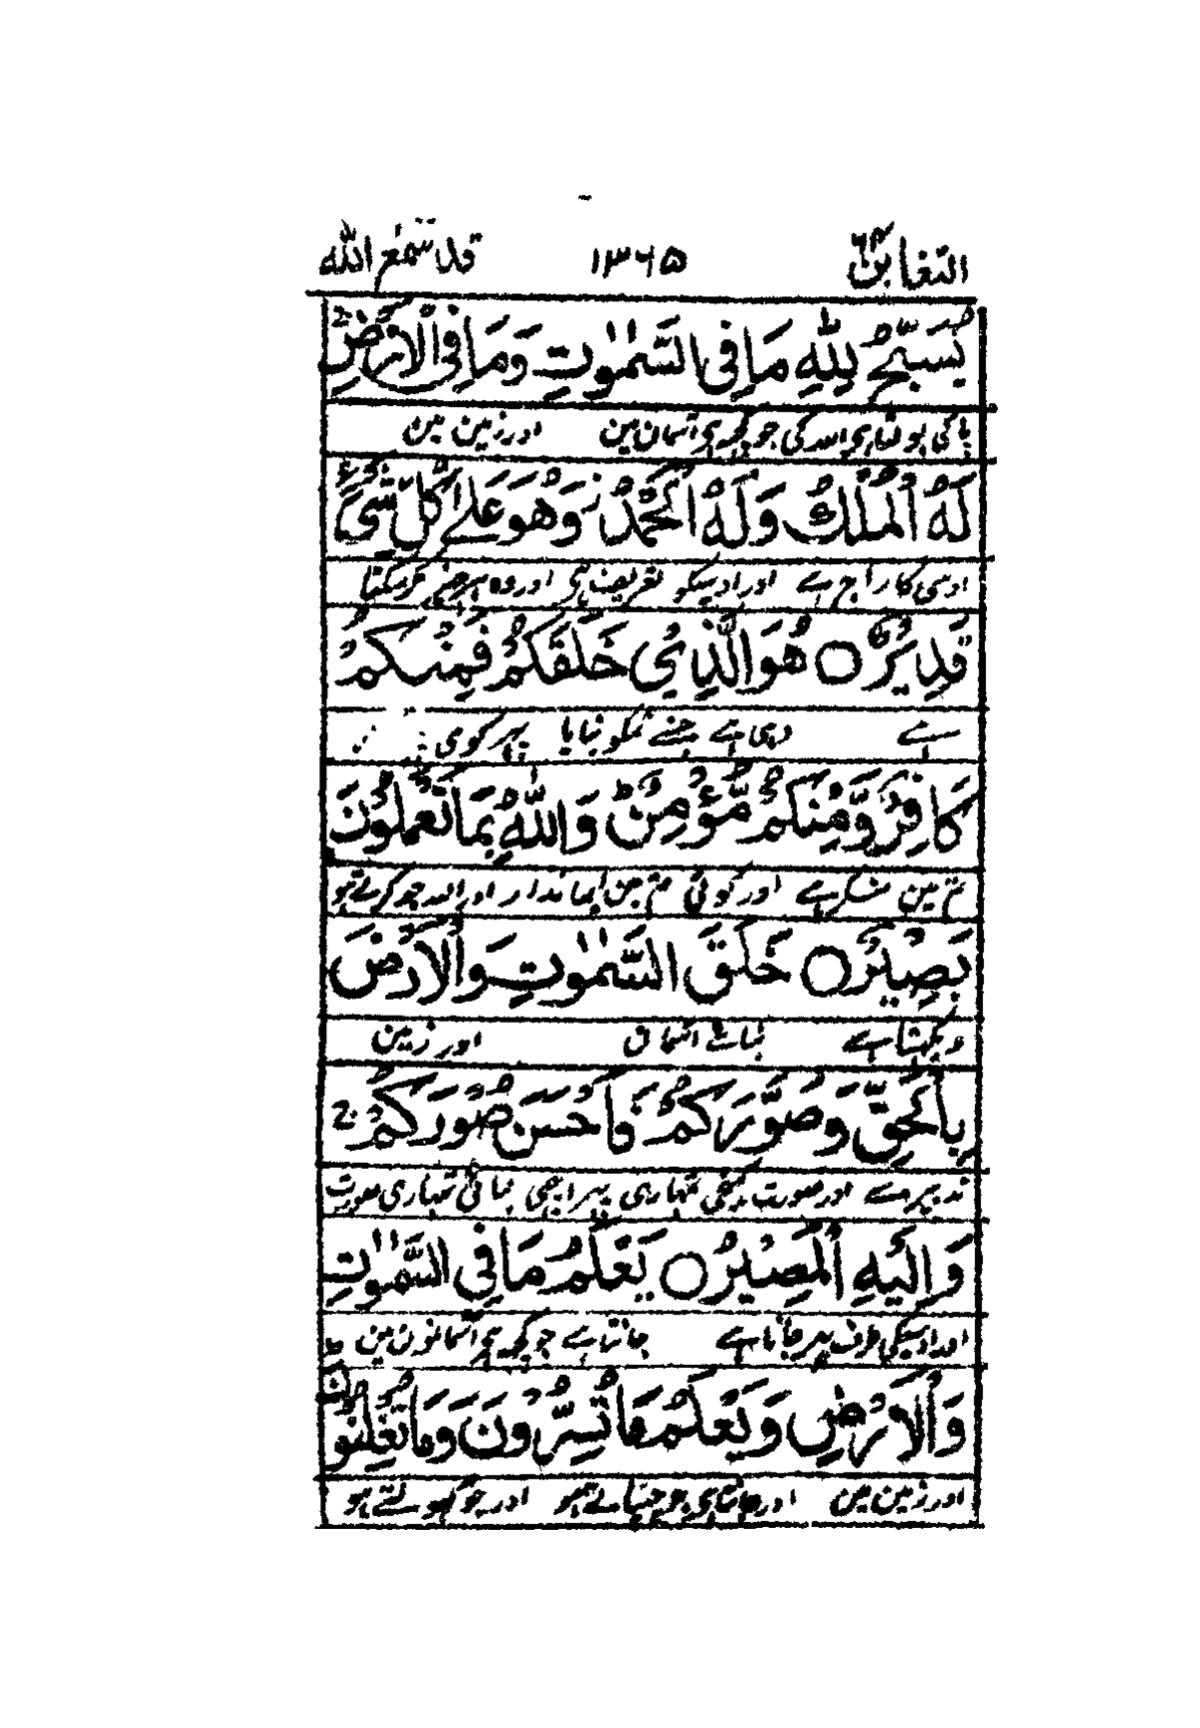 التغابن ۶۴ ۱۳۶۵ قد سمع الله
يُسَبِّحُ لِلّٰهِ مَا فِى السَّمٰوٰتِ وَمَا فِى الْاَرْضِ ۚ
پاکی بولتا ہی اللہ کی جو کچھ ہی آسمان مین اور زمین مین
لَهُ الْمُلْكُ وَلَهُ الْحَمْدُ ز وَهُوَ عَلٰى كُلِّ شَىْءٍ
اوسی کا راج ہے اور اوسیکو تعریف ہی اور وہ ہر چیز کر سکتا
قَدِيْرٌ ○ هُوَ الَّذِىْ خَلَقَكُمْ فَمِنْكُمْ
ہے وہی ہے جسنے تمکو بنایا پھر کوئی
كَافِرٌ وَّمِنْكُمْ مُّؤْمِنٌ ؕ وَاللّٰهُ بِمَا تَعْمَلُوْنَ
تم مین منکر ہے اور کوئی تم مین ایماندار اور اللہ جو کرتے ہو
بَصِيْرٌ ○ خَلَقَ السَّمٰوٰتِ وَالْاَرْضَ
دیکھتا ہے بنائے آسمان اور زمین
بِالْحَقِّ وَصَوَّرَكُمْ فَاَحْسَنَ صُوَرَكُمْ ۚ
تدبیر سے اور صورت کھینچی تمہاری پھر اچھی بنائی تمہاری صورت
وَاِلَيْهِ الْمَصِيْرُ ○ يَعْلَمُ مَا فِى السَّمٰوٰتِ
اور اوسیکی طرف پھر جانا ہے جانتا ہے جو کچھ ہی آسمانون مین
وَالْاَرْضِ وَيَعْلَمُ مَا تُسِرُّوْنَ وَمَا تُعْلِنُوْنَ ؕ
اور زمین مین اور جانتا ہی جو چھپاتے ہو اور جو کھولتے ہو